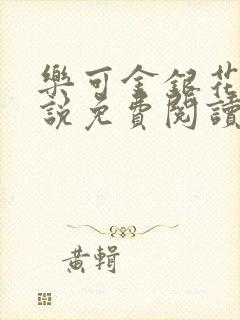 樂可金銀花
說免費閱讀
黃輯